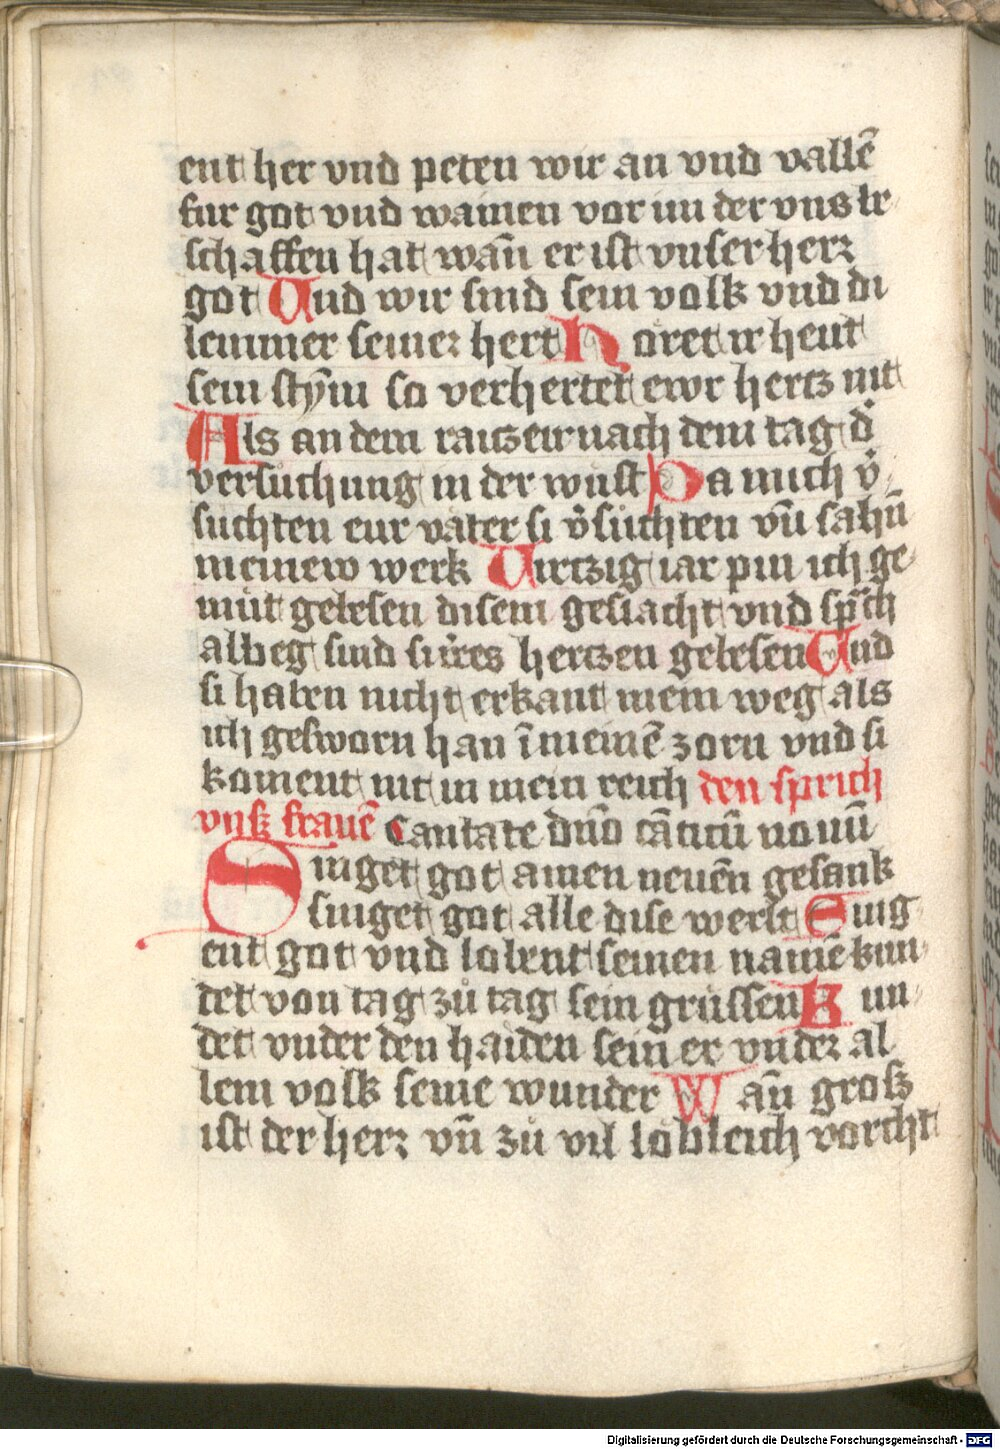 ent her vnd peten wir an vnd vallē
fur got vnd wainen vor im der vns be
schaffen hat wañ er ist vnser herr
got Vnd wir sind sein volk vnd di
lemmer seiner hert Horet ir heut
sein stym so verhertet ewr hertz nit
Als an dem raitzen nach dem tag d'
versuchung in der wust Da mich v'
suchten eur väter si v'suchten vñ sahñ
meinew werk Virtzig iar pin ich ge
müt gebesen disem geslächt vnd sprach
albeg sind si irres hertzen gebesen Vnd
si haben nicht erkant mein weg als
ich gesworn han ī meinē zorn vnd si
koment nit in mein reich den sprich
vnß frauē Cantate dño cāticū nouū
Singet got ainen neuen gesank
singet got alle dise werlt Sing
ent got vnd lobent seinen namē kun
det von tag zů tag sein grüssen Kun
det vnder den haiden sein er vnder al
lem volk seine wunder Wañ groß
ist der herr vñ zů vil lobleich vorcht
Digitalisierung gefördert durch die Deutsche Forschungsgemeinschaft - DFG